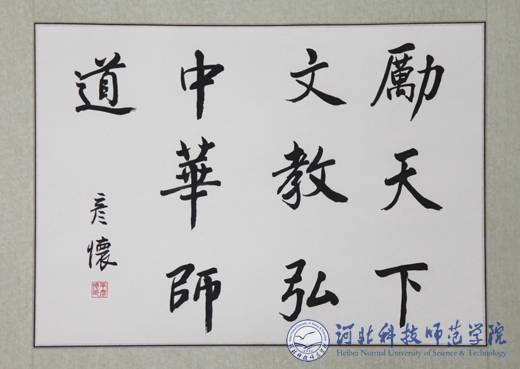 勵天下
文教弘
中華師
道
彦懷
河北科技师范学院
Hebei Normal University of Science & Technology